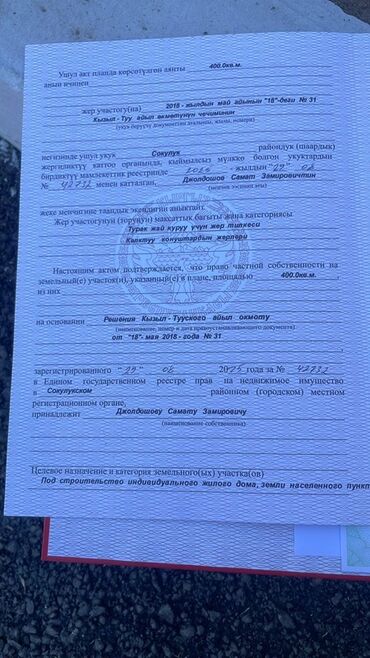 Ушул акт планда көрсөтүлгөн аянты 400.0кв.м.
анын ичинен
жер участогу(на) 2018 - жылдын май айынын "18"-деги № 31
Кызыл - Туу айыл өкмөтүнүн чечиминин
негизинде ушул укук Сокулук райондук (шаардык)
жергиликтүү каттоо органында, кыймылсыз мүлккө болгон укуктардын
бирдиктүү мамлекеттик реестринде - жылдын "29" 08
№ 42732 менен катталган, Джолдошов Самат Замировичтин
(менчик ээсинин аты)
жеке менчигине таандык экендигин аныктайт.
Жер участогунун (торунун) максаттык багыты жана категориясы
Турак жай куруу үчүн жер тилкеси
Калктуу конуштардын жерлери
Настоящим актом подтверждается, что право частной собственности на
земельный(е) участок(и), указанный(е) в плане, площадью 400.0кв.м.
из них
на основании Решения Кызыл - Тууского айыл окмоту
(наименование, номер и дата правоустанавливающего документа)
от "18"- мая 2018 - года № 31
зарегистрированного 08 2025 года за № 42732
в Едином государственном реестре прав на недвижимое имущество
в Сокулукском районном (городском) местном
регистрационном органе,
принадлежит Джолдошову Самату Замировичу
(наименование собственника)
Целевое назначение и категория земельного(ых) участка(ов)
Под строительство индивидуального жилого дома, земли населенного